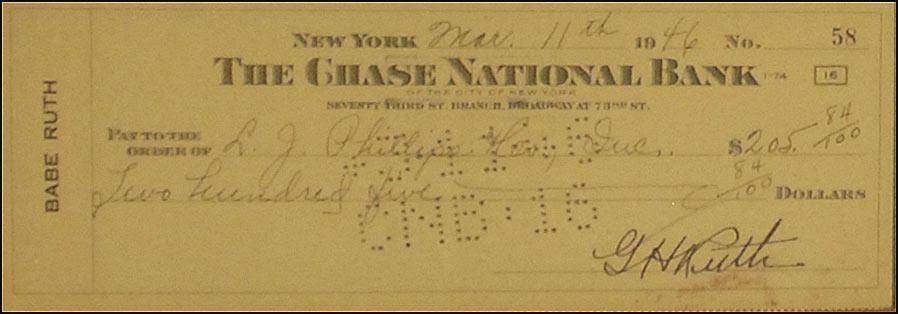 NEW YORK Mar. 11th 1946 No. 58
THE CHASE NATIONAL BANK 1-74 16
OF THE CITY OF NEW YORK
SEVENTY THIRD ST. BRANCH, BROADWAY AT 73RD ST.
PAY TO THE
ORDER OF L. J. Phillips Inc. $205. 84/100
Two hundred five 84/100 DOLLARS
CNB-16
G H Ruth
BABE RUTH